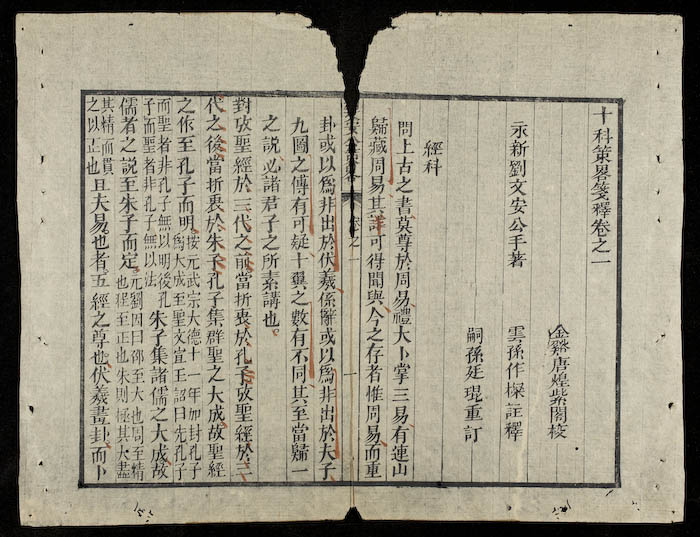 十科策畧箋釋卷之一
永新劉文安公手著
金谿唐煌紫閣校
雲孫作樑註釋
嗣孫廷琨重訂
經科
問上古之書莫尊於周易禮大卜掌三易有連山
歸藏周易其詳可得聞與今之存者惟周易而重
卦或以爲非出於伏羲係辭或以爲非出於夫子
九圖之傳有可疑十翼之數有不同其至當歸一
之說必諸君子之所素講也
對攷聖經於三代之前當折衷於孔子攷聖經於三
代之後當折衷於朱子孔子集群聖之大成故聖經
之作至孔子而明按元武宗大德十一年加封孔子
爲大成至聖文宣王詔曰先孔子
而聖者非孔子無以明後孔
子而聖者非孔子無以法朱子集諸儒之大成故
儒者之說至朱子而定元劉因曰邵至大也周至精
也程至正也朱則極其大盡
其精而貫
之以正也且夫易也者五經之尊也伏羲畫卦而卜
卷之一
一